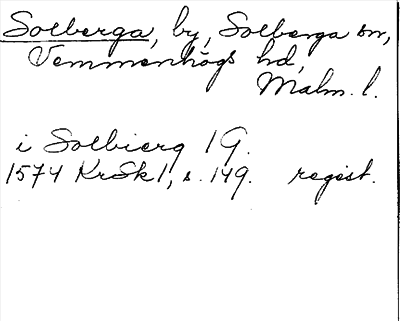 Solberga, by, Solberga sn,
Vemmenhögs hd,
Malm. l.
i Solbierg 1 G.
1574 KrSk 1, s. 149. regist.